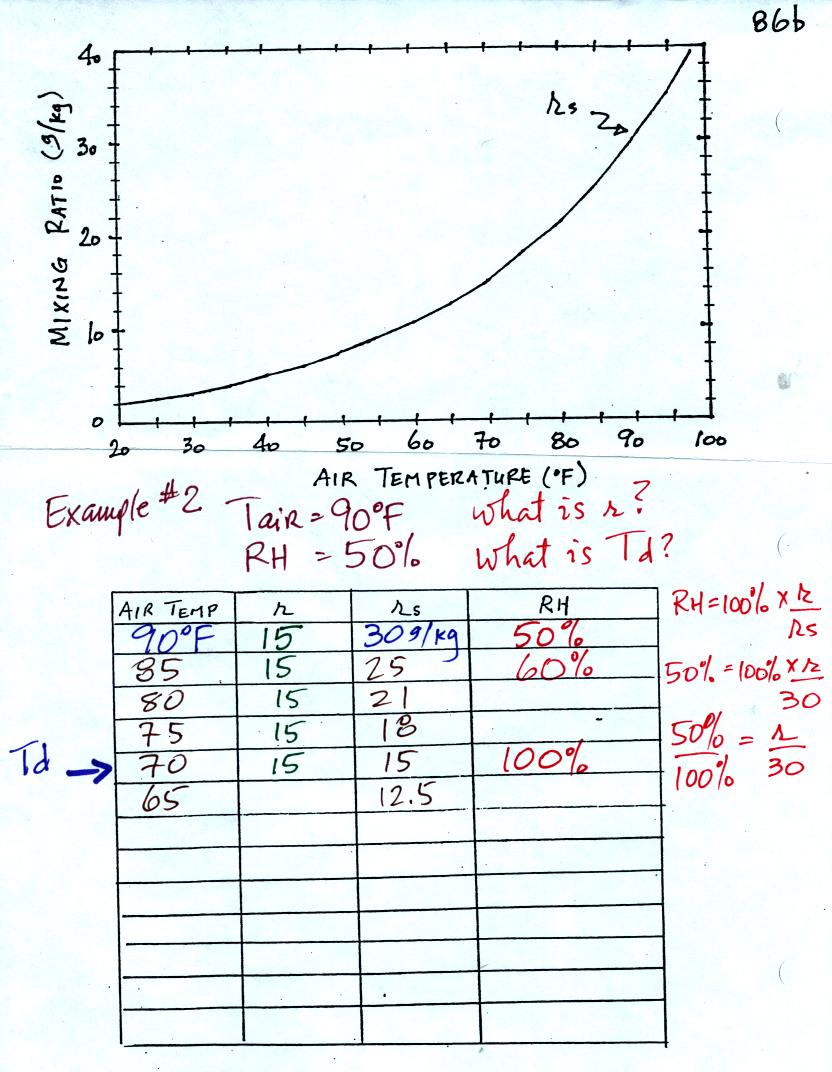 86b
40
30
20
10
0
MIXING RATIO (g/kg)
rs
20 30 40 50 60 70 80 90 100
AIR TEMPERATURE (°F)
Example #2 TAIR = 90°F what is r?
RH = 50% what is Td?
AIR TEMP r rs RH
90°F 15 30g/kg 50%
85 15 25 60%
80 15 21
75 15 18
Td → 70 15 15 100%
65 12.5
RH = 100% × r/rs
50% = 100% × r/30
50%/100% = r/30